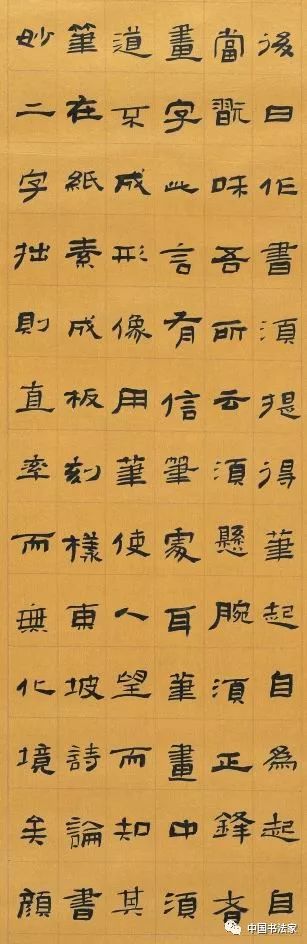 後日作書須提得筆起自為起自
當翫味吾所云須懸腕須正鋒者
畫字此言有信筆處耳筆畫中須
道不成形像用筆使人望而知其
筆在紙素成板刻樣東坡詩論書
妙二字拙則直率而無化境矣顏
中国书法家